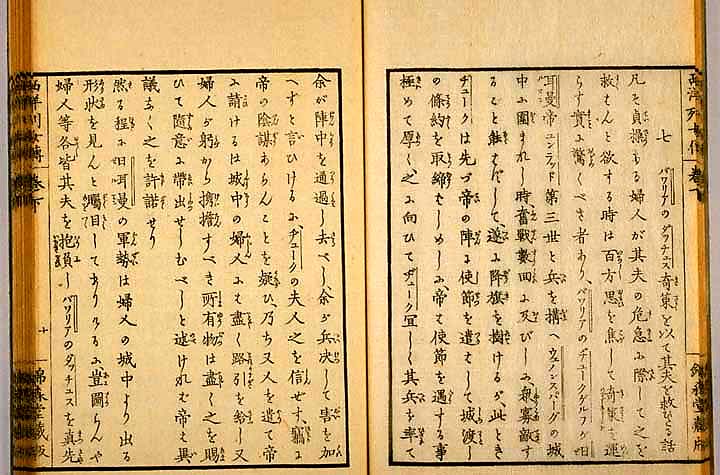 西洋列女傳 巻下
錦森堂蔵版
七 バワリアのダッチェス奇策を以て其夫を救ひたる話
凡そ貞操ある婦人が其夫の危急に際して之を
救はんと欲する時は百方思を焦して綺策を運
らす實に驚くべき者あり、バワリアのヂュークグルフが日
耳曼帝コンラッド第三世と兵を搆へウェインスバーグの城
中に圍まれし時奮戰數回に及びしに衆寡敵す
ること能はずして遂に降旗を掲けるが此とき
ヂュークは先づ帝の陣に使節を遣はして城渡し
の條約を取締せしめしに帝は使節を遇する事
極めて厚く之に向ひてヂューク宜しく其兵を率て
余が陣中を通過し去べし余が兵决して害を加
へずと言ひけるに、ヂュークの夫人之を信せず、竊に
帝の陰謀あらんことを疑ひ、乃ち又人を遣て帝
に請けるは城中の婦人にも盡く路引を給し又
婦人が躬から擕擔すべき所有物は盡く之を賜
ひて随意に帶出せしむべしと述けれは帝も異
議なく之を許諾せり
然る程に日耳曼の軍勢は婦人の城中より出る
形状を見んと矚目してありけるに豈圖らんや
婦人等各皆其夫を抱負しバワリアのダッチェスを真先
西洋列女傳 巻下
十
錦森堂蔵版